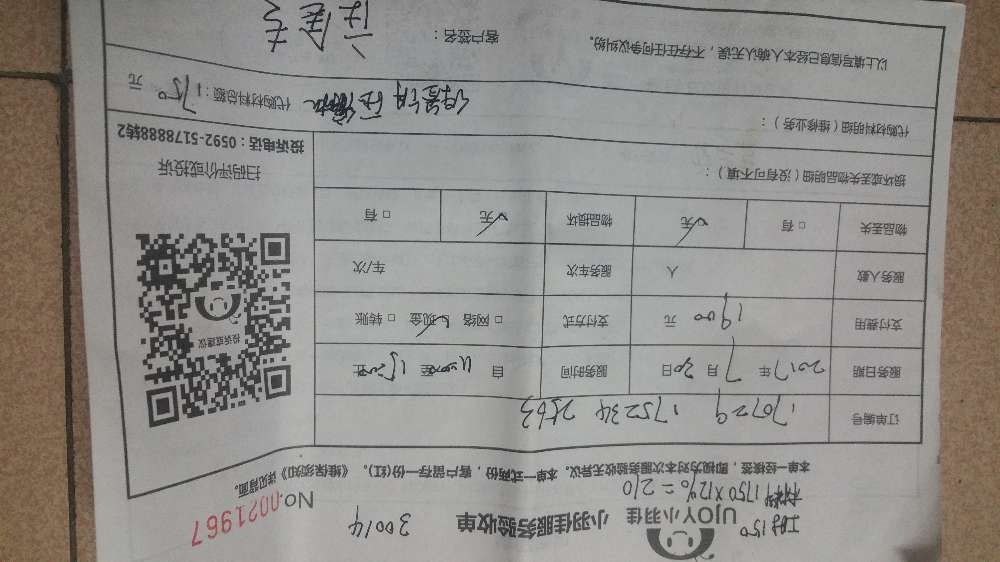 UJOY小羽佳 小羽佳服务验收单 30014
No.0021967
工时150
材料1750×12%=210
本单一经核签，即视为对本次服务验收无异议。本单一式两份，客户留存一份(红)。《维保须知》详见背面。
订单编号 170729 175234 2563
服务日期 2017年7月30日 服务时间 自 至 止
支付费用 1900 元 支付方式 □网络 ☑现金 □转账
服务人数 人 服务车次 车/次
物品丢失 □有 ☑无 物品损坏 ☑无 □有
损坏或丢失物品明细（没有可不填）：
代购材料明细（维修业务）：
代购材料总额：1750 元
以上填写信息已经本人确认无误，不存在任何争议纠纷。 客户签名：
投诉或建议
扫码评价或投诉
投诉电话：0592-5178888转2